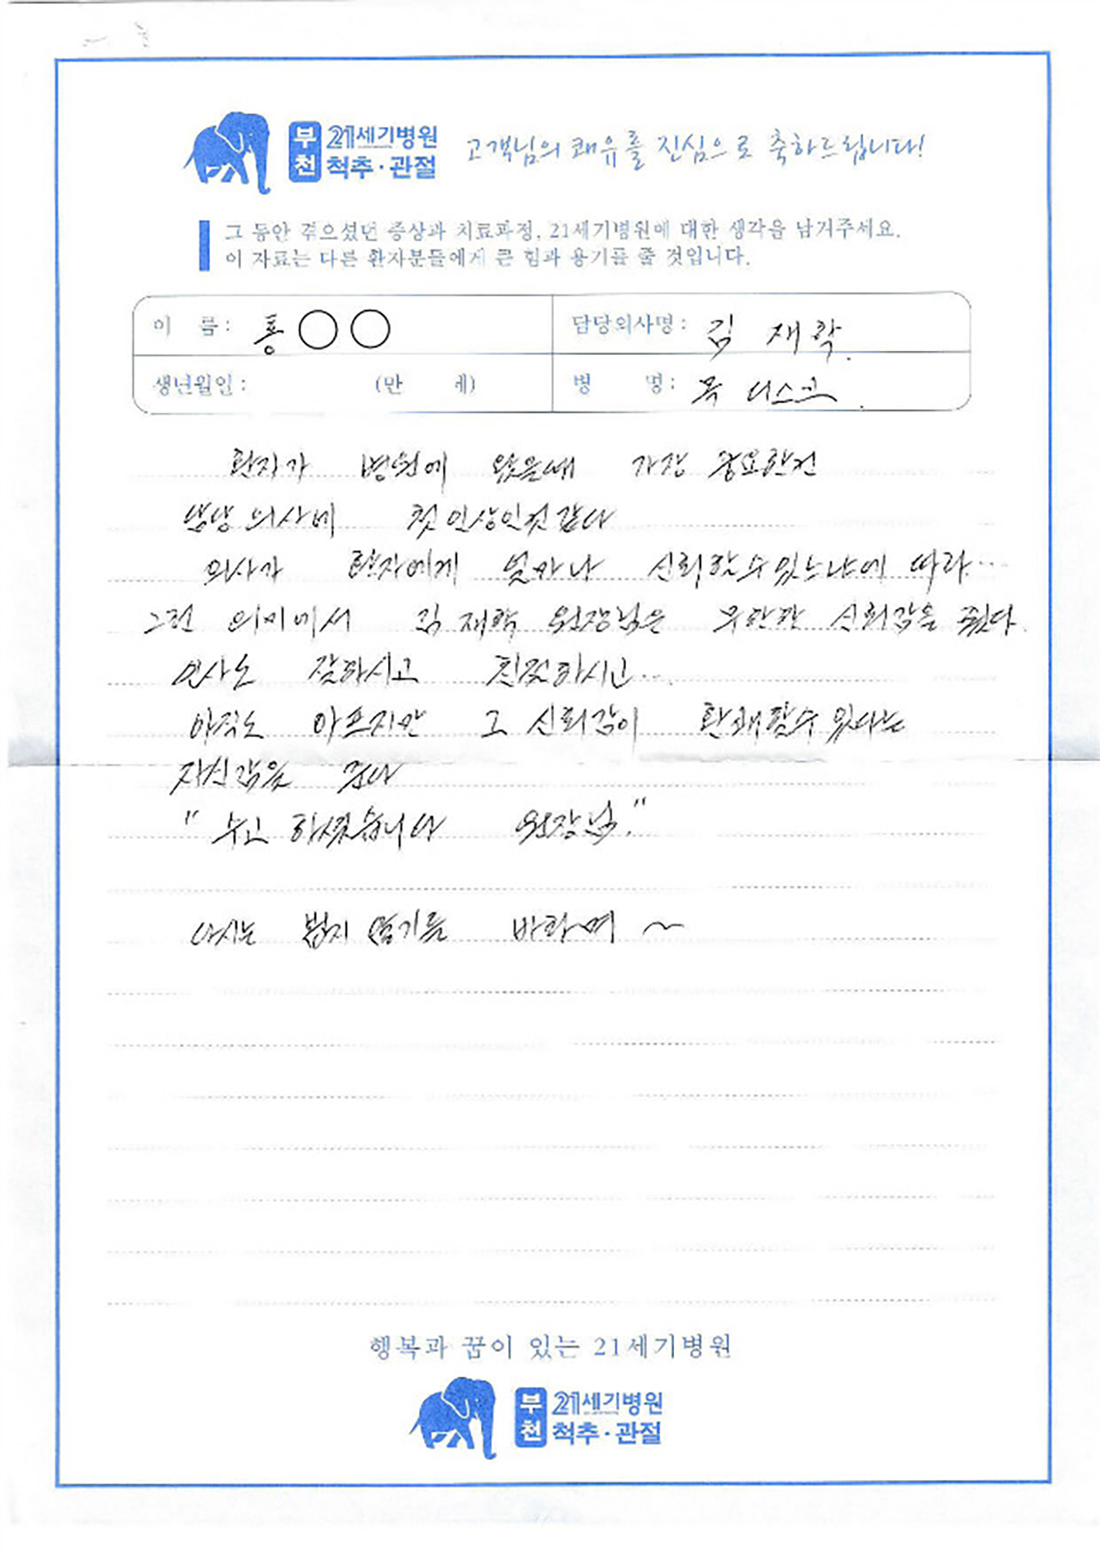 부천 21세기병원 척추·관절 고객님의 쾌유를 진심으로 축하드립니다!
그 동안 겪으셨던 증상과 치료과정, 21세기병원에 대한 생각을 남겨주세요.
이 자료는 다른 환자분들에게 큰 힘과 용기를 줄 것입니다.
이 름 : 홍○○ 담당의사명 : 김 재학.
생년월일 : (만 세) 병 명 : 목 디스크.
환자가 병원에 왔을때 가장 중요한건
담당 의사에 첫인상인것같다
의사가 환자에게 얼마나 신뢰할수있느냐에 따라...
그런 의미에서 김재학 원장님은 무한한 신뢰감을 줬다.
인사도 잘하시고 친절하시고...
아직도 아프지만 그 신뢰감이 완쾌할수 있다는
자신감을 준다
" 수고 하셨습니다 원장님."
다시는 뵙지 않기를 바라며 ~
행복과 꿈이 있는 21세기병원
부천 21세기병원 척추·관절